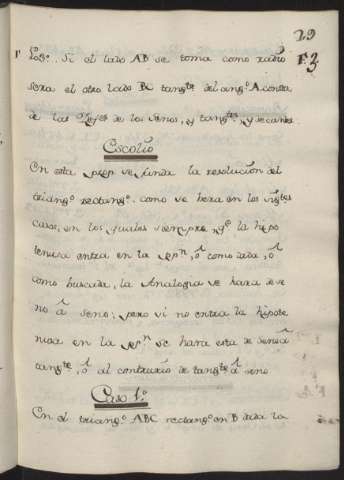 29
Log.º Si el lado AB se toma como radio F.3
sera el otro lado BC tang.te del ang.º A consta
de las de los senos, y tang.tes, y secantes.
Escolio
En esta prop se funda la resolucion del
triang.º rectang.º como se hara en los sig.tes
casos, en los quales siempre q.e la hipo
tenusa entra en la ó como dada, ó
como buscada, la Analogia se hara de se
no á seno; pero si no entra la hipote
nusa en la se hara esta de seno á
tang.te, ó al contrario de tang.te á seno
Caso 1.º
En el triang.º ABC rectang.º en B dada la